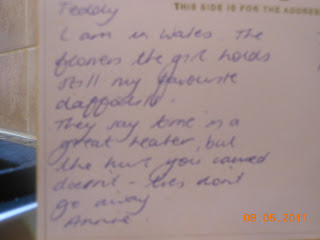 Teddy
THIS SIDE IS FOR THE ADDRES
I am in Wales The
flowers the girl holds
still my favourite
daffodils.
They say time is a
great healer, but
the hurt you caused
doesn't - lies don't
go away
Annie.
08.06.2011